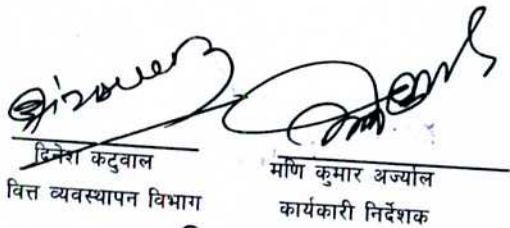 दिनेश कटुवाल
वित्त व्यवस्थापन विभाग
मणि कुमार अर्ज्याल
कार्यकारी निर्देशक